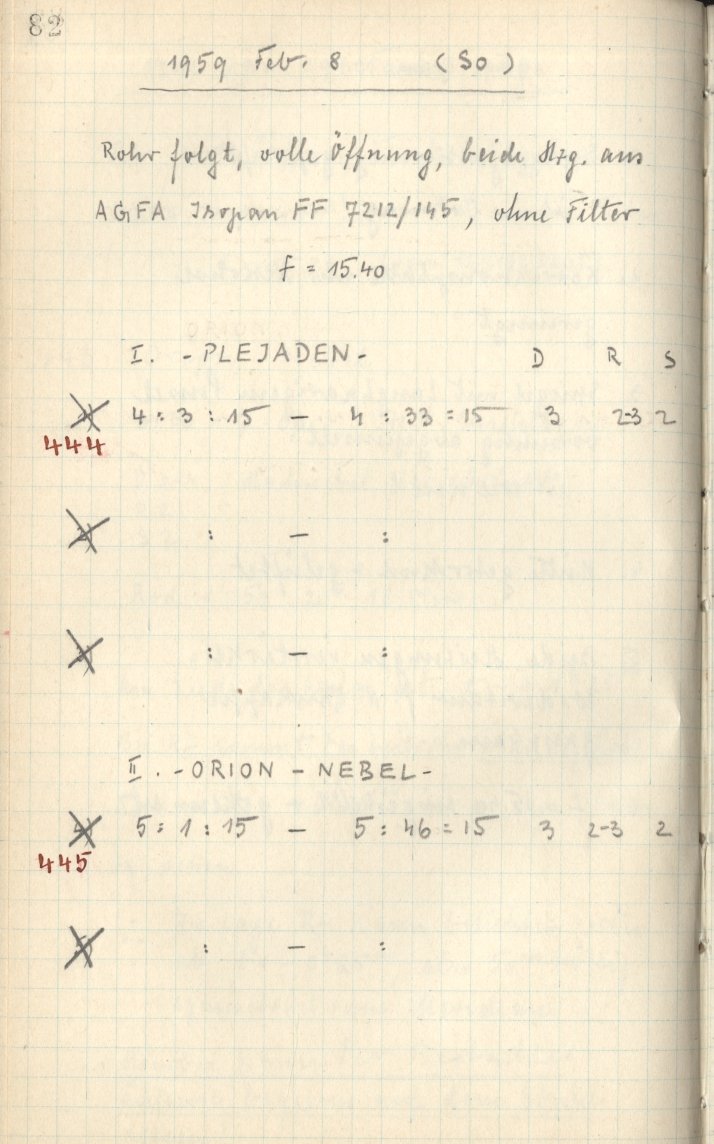 82
1959 Feb. 8 (So)
Rohr folgt, volle Öffnung, beide Hzg. aus
AGFA Isopan FF 7212/145, ohne Filter
f = 15.40
I. - PLEJADEN - D R S
4 : 3 : 15 — 4 : 33 : 15 3 2-3 2
444
: — :
: — :
II. - ORION - NEBEL -
5 : 1 : 15 — 5 : 46 : 15 3 2-3 2
445
: — :